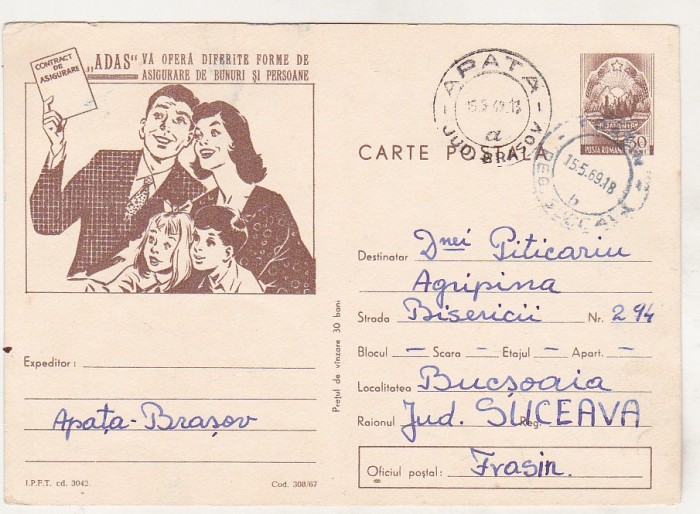 CONTRACT
DE
ASIGURARE
„ADAS“ VĂ OFERĂ DIFERITE FORME DE
ASIGURARE DE BUNURI ȘI PERSOANE
APAȚA
15.5.69.18
a
JUD. BRAȘOV
CARTE POȘTALĂ
POSTA ROMANA
15.5.69.18
b
REG. SUCEAVA
Destinatar Dnei Piticariu
Agripina
Strada Bisericii Nr. 294
Blocul – Scara – Etajul – Apart. –
Localitatea Bucșoaia
Raionul Jud. SUCEAVA Reg.
Oficiul poștal: Frasin.
Prețul de vînzare 30 bani
Expeditor:
Apața-Brașov
I.P.F.T. cd. 3042.
Cod. 308/67